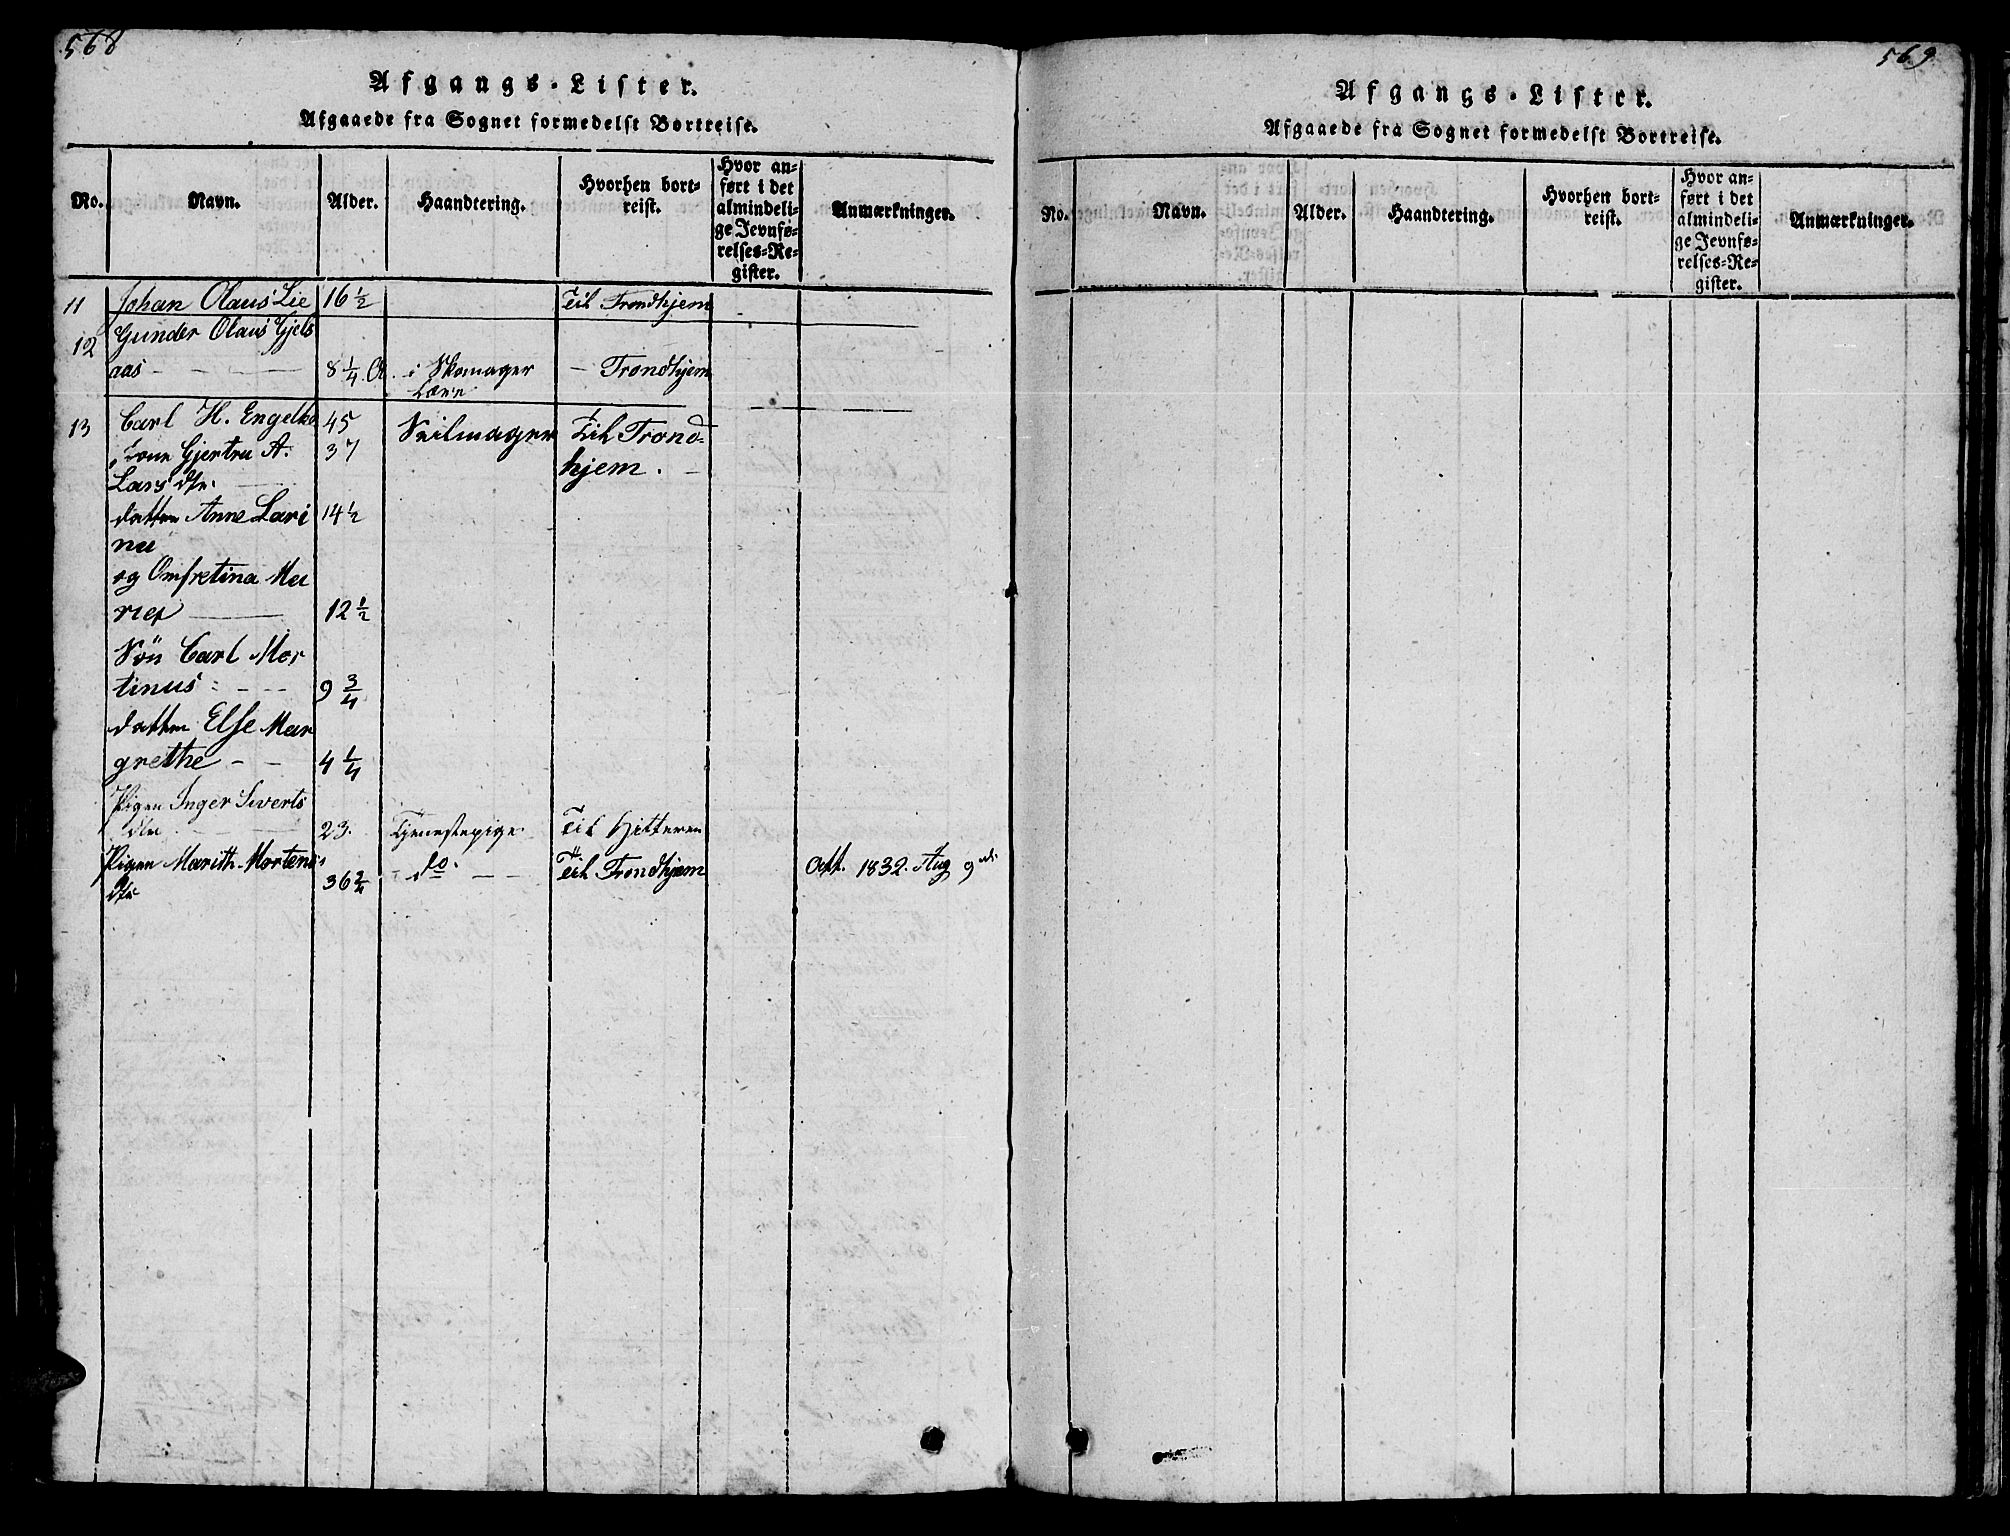 568
Afgangs-Lister.
Afgaaede fra Sognet formedelst Bortreise.
No. Navn. Alder. Haandtering. Hvorhen bortreist. Hvor anført i det almindelige Jevnførelses-Register. Anmærkninger.
11 Johan Olaus Lie 16 ½ Til Trondhjem
12 Gunder Olaus Gjels
aas - - 8 ¼ i Skomager - Trondhjem
Lære
13 Carl H. Engelke 45 Seilmager Til Trond-
Kone Gjertru A. 37 hjem. -
Lars dtr.
datter Anne Lari 14 ½
næ
og Omfretina Ma
rie 12 ½
Søn Carl Mor
tinus - - 9 ¾
datter Else Mar
grethe - - 4 ¼
Pigen Inger Siverts
dtr 23. Tjenestepige Til Hitteren
Pigen Marith Mortens
dtr 36 ¾ - do. - - Til Trondhjem Att. 1832. Aug 9de
569
Afgangs-Lister.
Afgaaede fra Sognet formedelst Bortreise.
No. Navn. Alder. Haandtering. Hvorhen bortreist. Hvor anført i det almindelige Jevnførelses-Register. Anmærkninger.